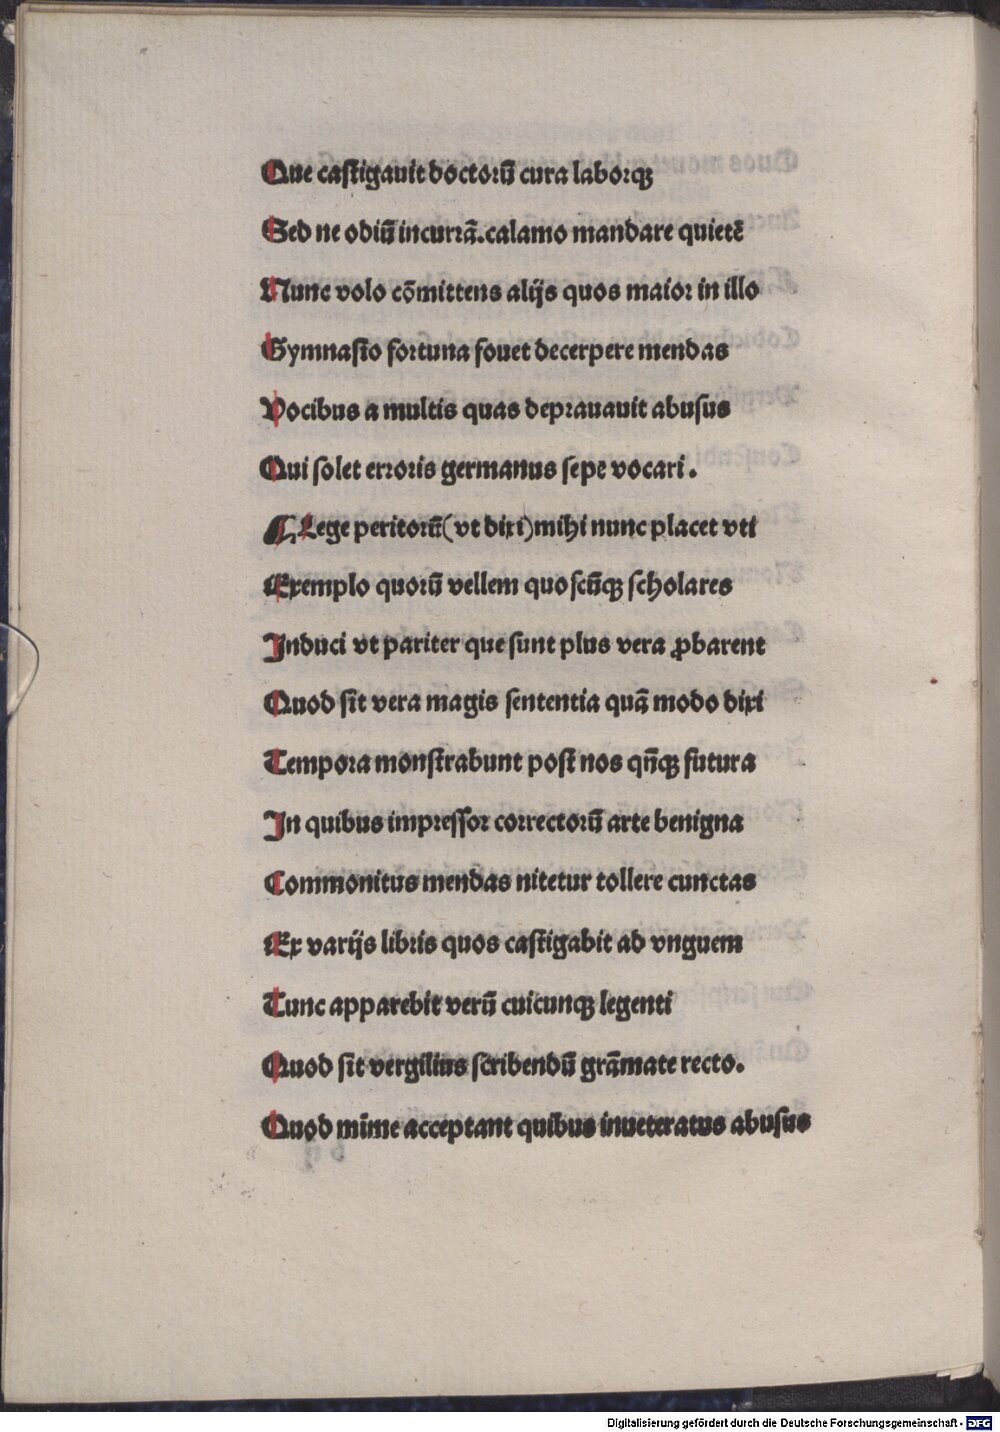 Que castigauit doctorū cura laborqꝫ
Sed ne odiū incurrā.calamo mandare quietē
Nunc volo cōmittens alijs quos maior in illo
Gymnasio fortuna fouet decerpere mendas
Vocibus a multis quas deprauauit abusus
Qui solet erroris germanus sepe vocari.
¶ Lege peritorū(vt dixi)mihi nunc placet vti
Exemplo quorū vellem quoscūqꝫ scholares
Induci vt pariter que sunt plus vera ꝓbarent
Quod sit vera magis sententia quā modo dixi
Tempora monstrabunt post nos qn̄qꝫ futura
In quibus impressor correctorū arte benigna
Commonitus mendas nitetur tollere cunctas
Ex varijs libris quos castigabit ad vnguem
Tunc apparebit verū cuicunqꝫ legenti
Quod sit vergilius scribendū grāmate recto.
Quod mīme acceptant quibus inueteratus abusus
Digitalisierung gefördert durch die Deutsche Forschungsgemeinschaft - DFG